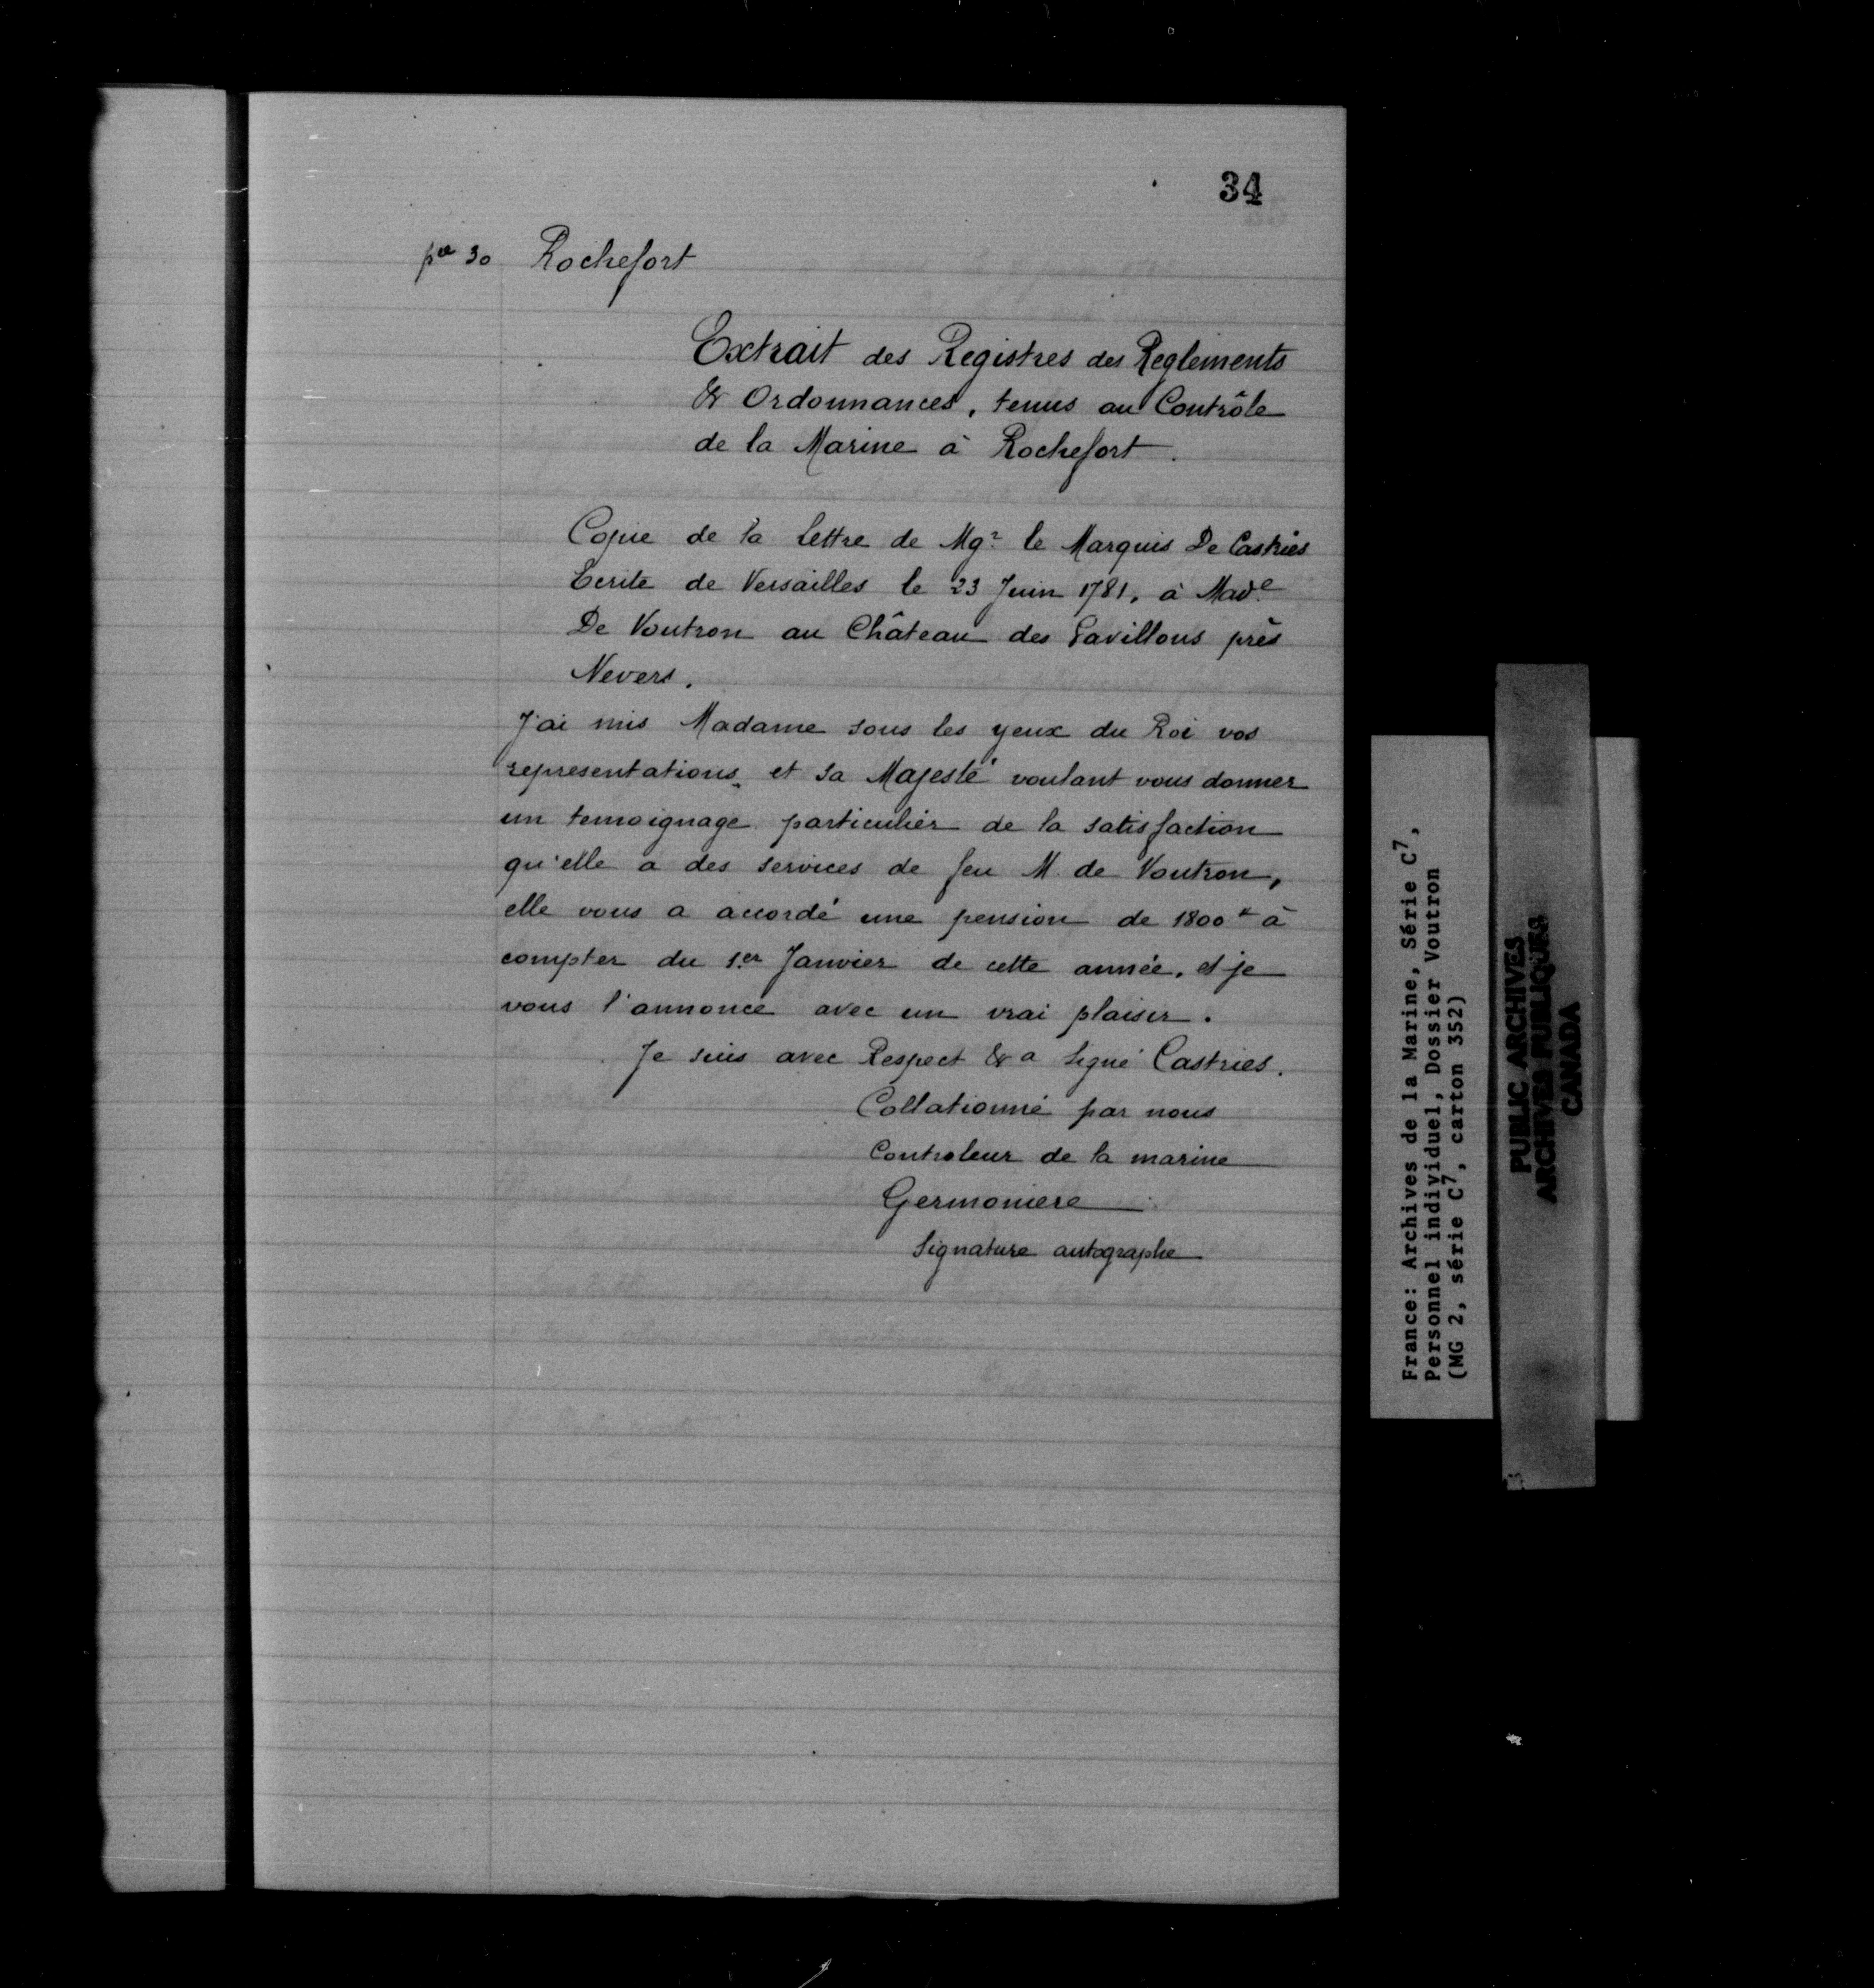 34
pce 30 Rochefort
Extrait des Registres des Reglements
& Ordonnances, tenus au Contrôle
de la Marine à Rochefort.
Copie de la lettre de Mgr le Marquis De Castries
Ecrite de Versailles le 23 Juin 1781, à Made
De Voutron au Château des Pavillons près
Nevers.
J'ai mis Madame sous les yeux du Roi vos
representations, et sa Majesté voulant vous donner
un temoignage particulier de la satisfaction
qu'elle a des services de feu M. de Voutron,
elle vous a accordé une pension de 1800 à
compter du 1er Janvier de cette année, et je
vous l'annonce avec un vrai plaisir.
Je suis avec Respect &a Signé Castries.
Collationné par nous
Controleur de la marine
Germoniere
Signature autographe
France: Archives de la Marine, Série C7,
Personnel individuel, Dossier Voutron
(MG 2, série C7, carton 352)
PUBLIC ARCHIVES
ARCHIVES PUBLIQUES
CANADA